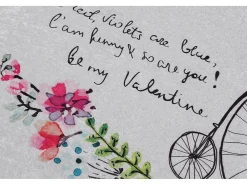 red, violets are blue,
I am funny & so are you!
be my Valentine